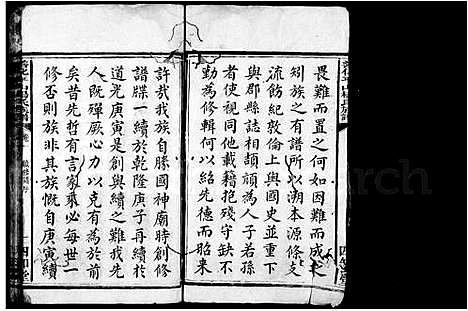 畏難而置之何如因難而成之
矧族之有譜所以溯本源條支
流飭紀敦倫上與國史並重下
與郡縣誌相頡頏為人子若孫
者使視同他載籍抱殘守缺不
勤為修輯何以紹先德而昭來
許哉我族自勝國神廟時創修
譜牒一續於乾隆庚子再續於
道光庚寅是創與續之難我先
人既殫厥心力以克有為於前
矣昔先哲有言家乘必每世一
修否則族非其族慨自庚寅續